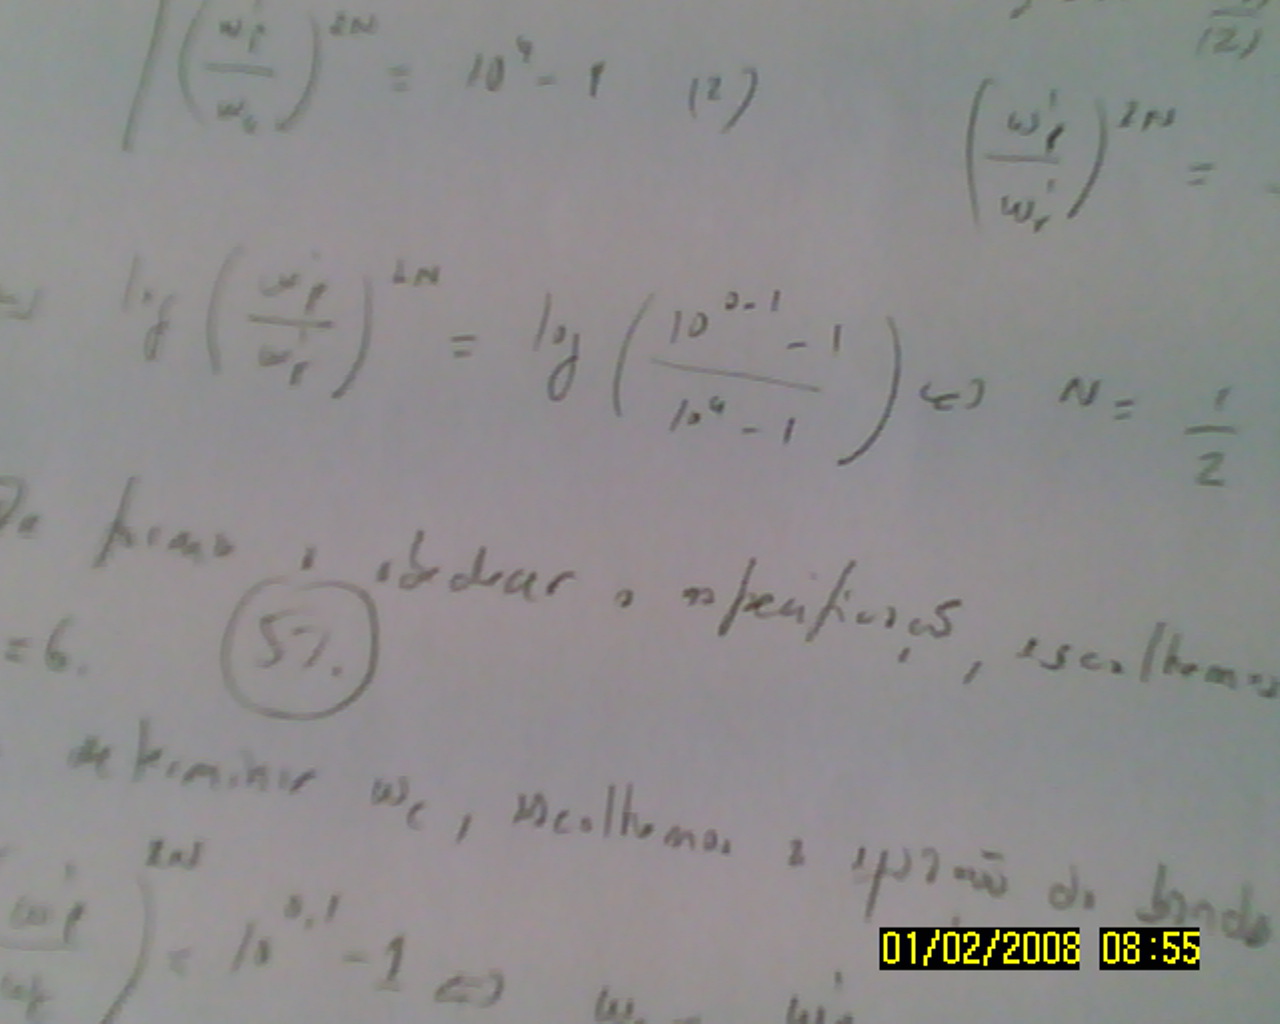 (ω'r / ωc)^2N = 10^4 - 1 (2)
(2)
(ω'p / ω'r)^2N =
log (ω'p / ω'r)^2N = log (10^0.1 - 1 / 10^4 - 1) <=> N = 1/2
De forma a obedecer a especificações, escolhemos
= 6. 5%.
determinar ωc, escolhemos a equação da banda
(ω'p / ωc)^2N = 10^0.1 - 1 <=>
01/02/2008 08:55